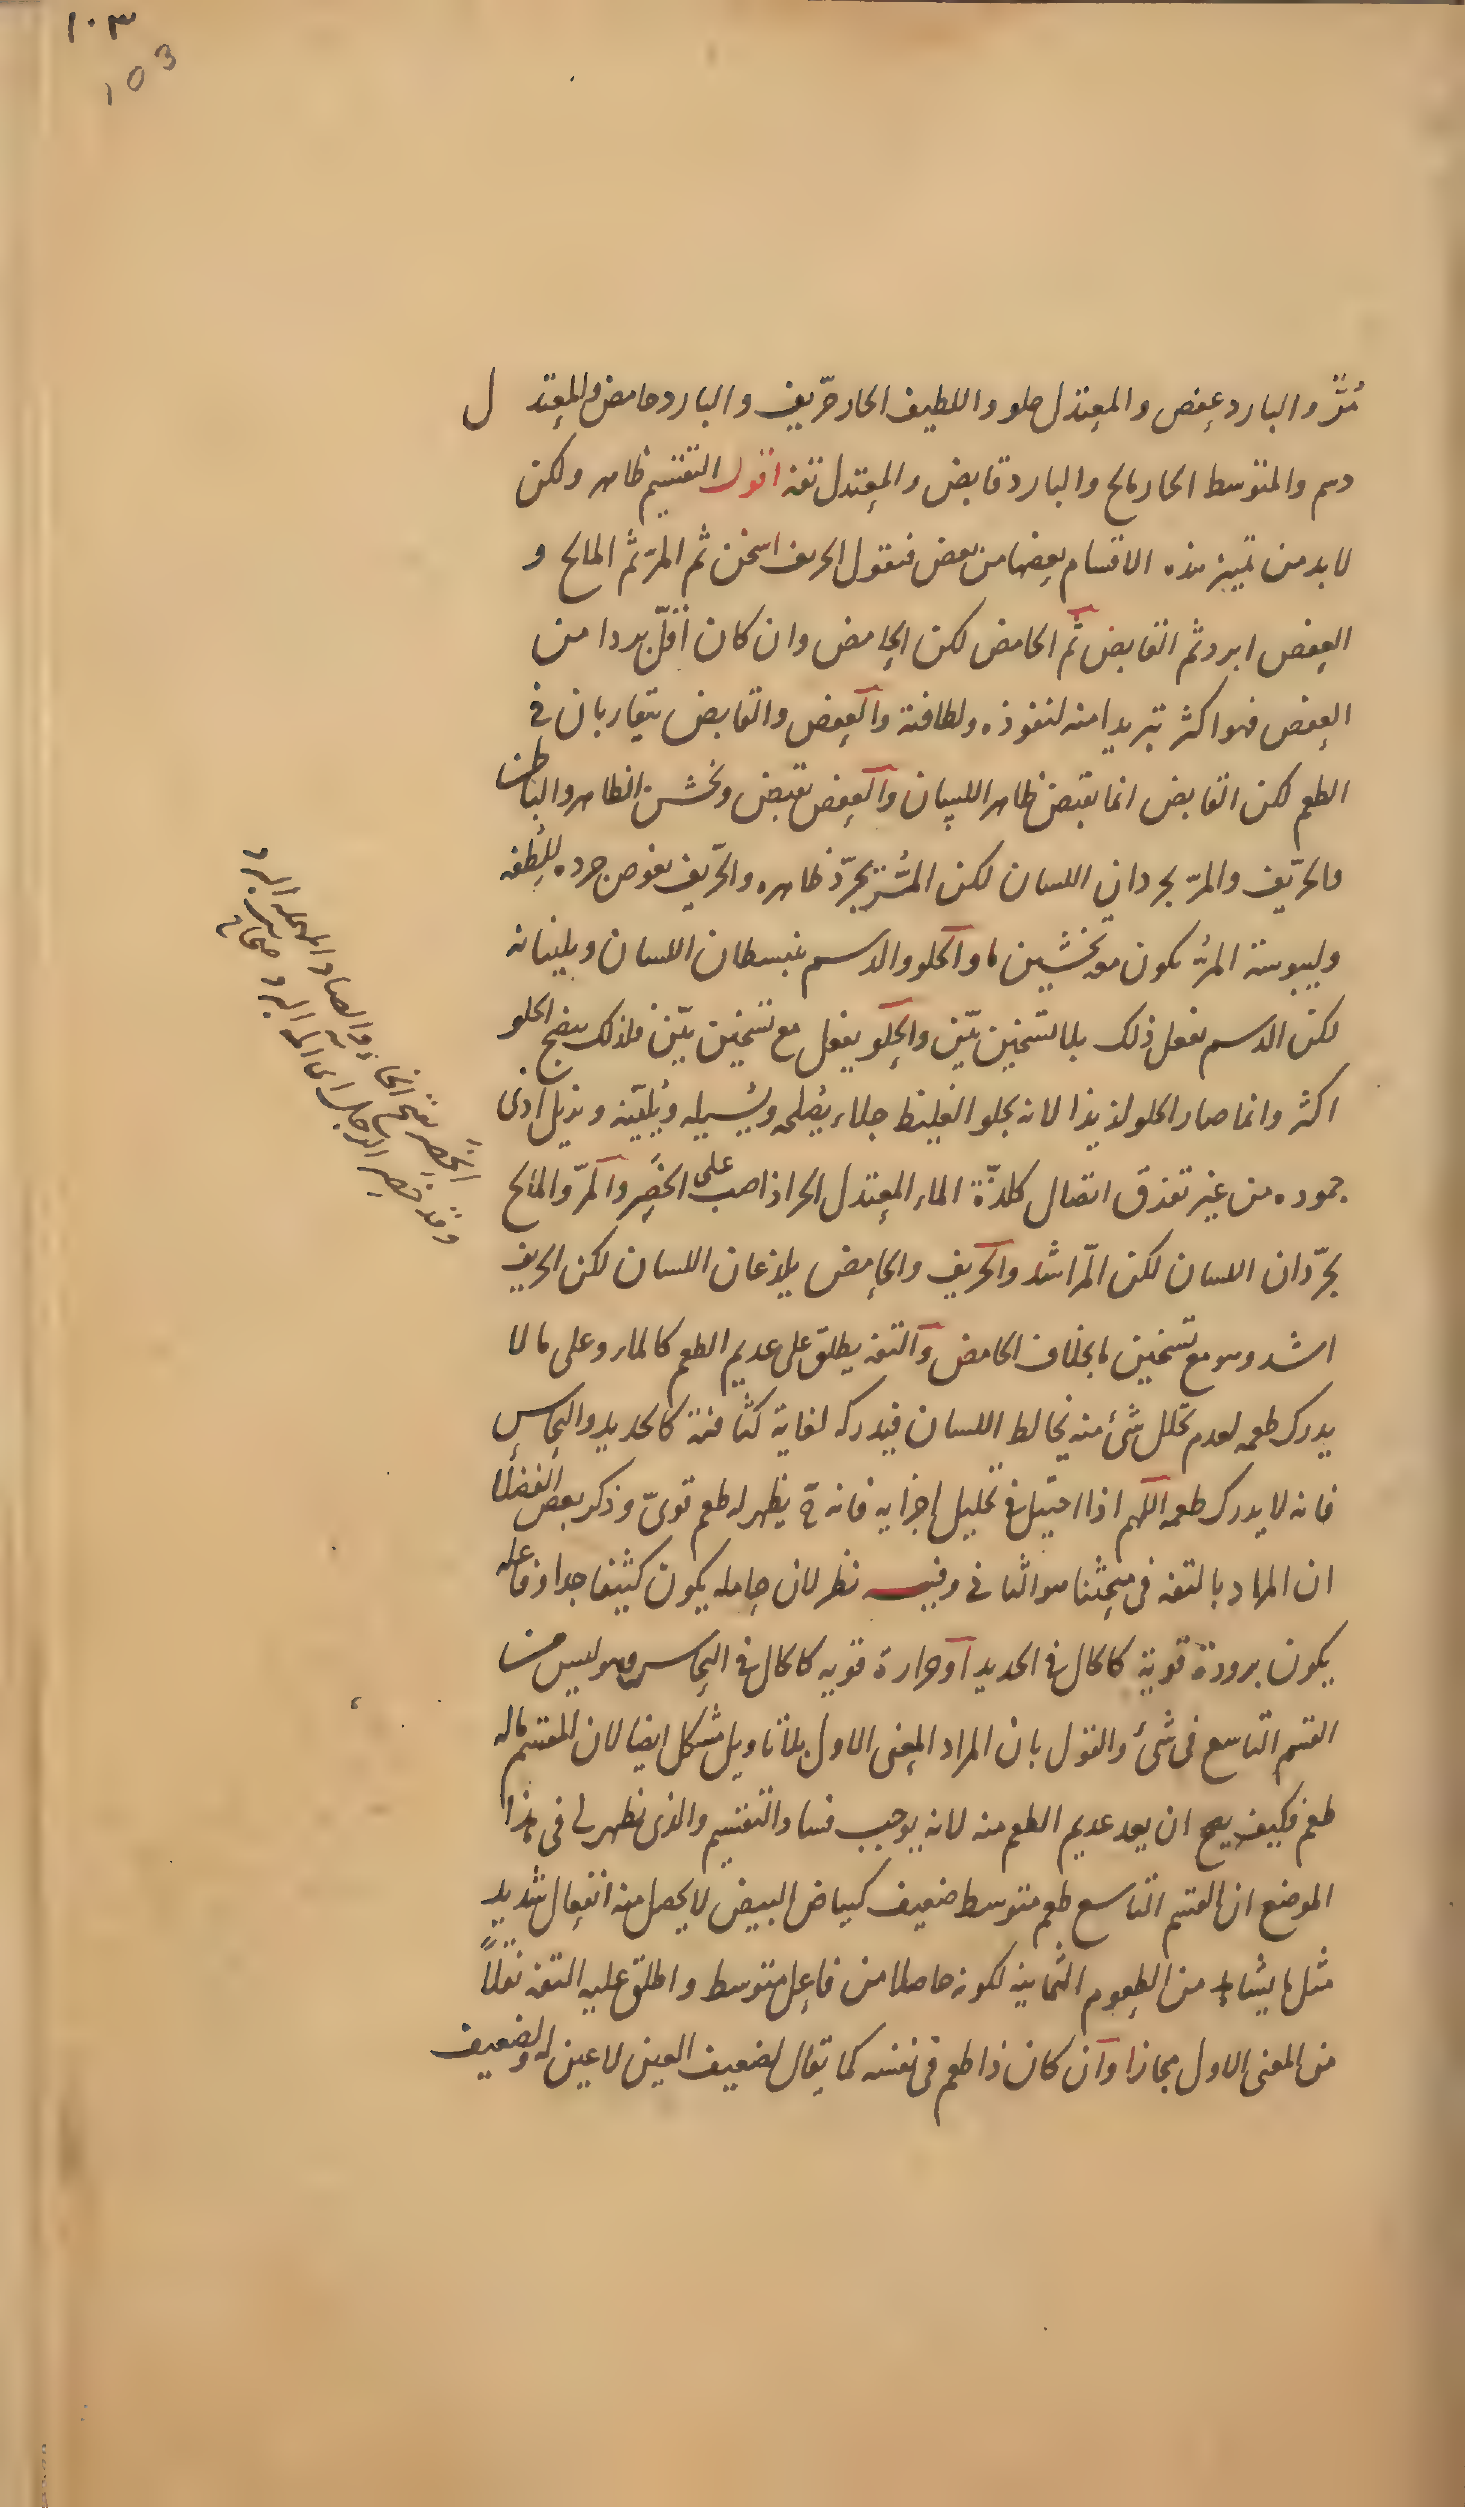 ١٠٣
103
مُرٌّ والبارد عفص والمعتدل حلو واللطيف الحار حرّيف والبارد حامض والمعتدل
دسم والمتوسط الحار مالح والبارد قابض والمعتدل تفه اقول التقسيم ظاهر ولكن
لا بد من تمييز هذه الاقسام بعضها من بعض فنقول الحريف اسخن ثم المرّ ثم المالح و
العفص ابرد ثم القابض ثم الحامض لكن الحامض وان كان اقلّ بردا من
العفص فهو اكثر تبريدا منه لنفوذه ولطافته والعفص والقابض يتقاربان في
الطعم لكن القابض انما يقبض ظاهر اللسان والعفص يقبض ويخشن الظاهر والباطن
والحرّيف والمرّ يجردان اللسان لكن المرّ يجرّد ظاهره والحرّيف يغوص جرده للطفه
وليبوسة المرّ يكون معه تخشين ما والحلو والدسم يبسطان اللسان ويلينانه
لكن الدسم يفعل ذلك بلا تسخين بيّن والحلو يفعل مع تسخين بيّن فلذلك ينضج الحلو
اكثر وانما صار الحلو لذيذا لانه يجلو الغليظ جلاء يصلحه ويسيله ويليّنه ويزيل اذى
جموده من غير تفرق اتصال كلذّة الماء المعتدل الحر اذا صب على الخَصِر والمرّ والمالح
يجرّدان اللسان لكن المرّ اشد والحريف والحامض يلذعان اللسان لكن الحريف
اشد وهو مع تسخين ما بخلاف الحامض والتفه يطلق على عديم الطعم كالماء وعلى ما لا
يدرك طعمه لعدم تحلل شئ منه يخالط اللسان فيدركه لغاية كثافته كالحديد والنحاس
فانه لا يدرك طعمه اللهم اذا احتيل في تحليل اجزايه فانه ح يظهر له طعم قوىّ وذكر بعض الفضلا
ان المراد بالتفه فى مبحثنا هو الثانى وفيه نظر لان حامله يكون كثيفا جدا وفاعله
يكون برودة قوية كالحال في الحديد او حرارة قويه كالحال في النحاس وهو ليس من
القسم التاسع فى شئ والقول بان المراد المعنى الاول بلا تاويل مشكل ايضا لان المقسم ما له
طعم فكيف يصح ان يعد عديم الطعم منه لانه يوجب فساد التقسيم والذى يظهر لى فى هذا
الموضع ان القسم التاسع طعم متوسط ضعيف كبياض البيض لا يحصل منه انفعال شديد
مثل ما يشاهد من الطعوم الثمانية لكونه حاصلا من فاعل متوسط واطلق عليه التفه نقلًا
من المعنى الاول مجازا وان كان ذا طعم فى نفسه كما يقال لضعيف العين لا عين له ولضعيف
الخصر بفتح الخاء والصاد المهملة البرد
وقد خصر الرجل اى آلمه البرد صحاح